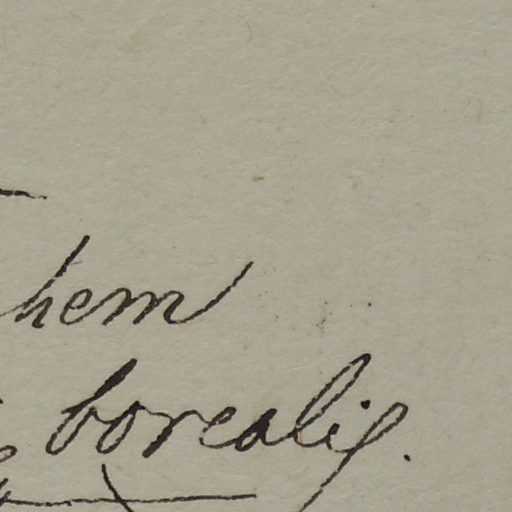 hem
borealis.